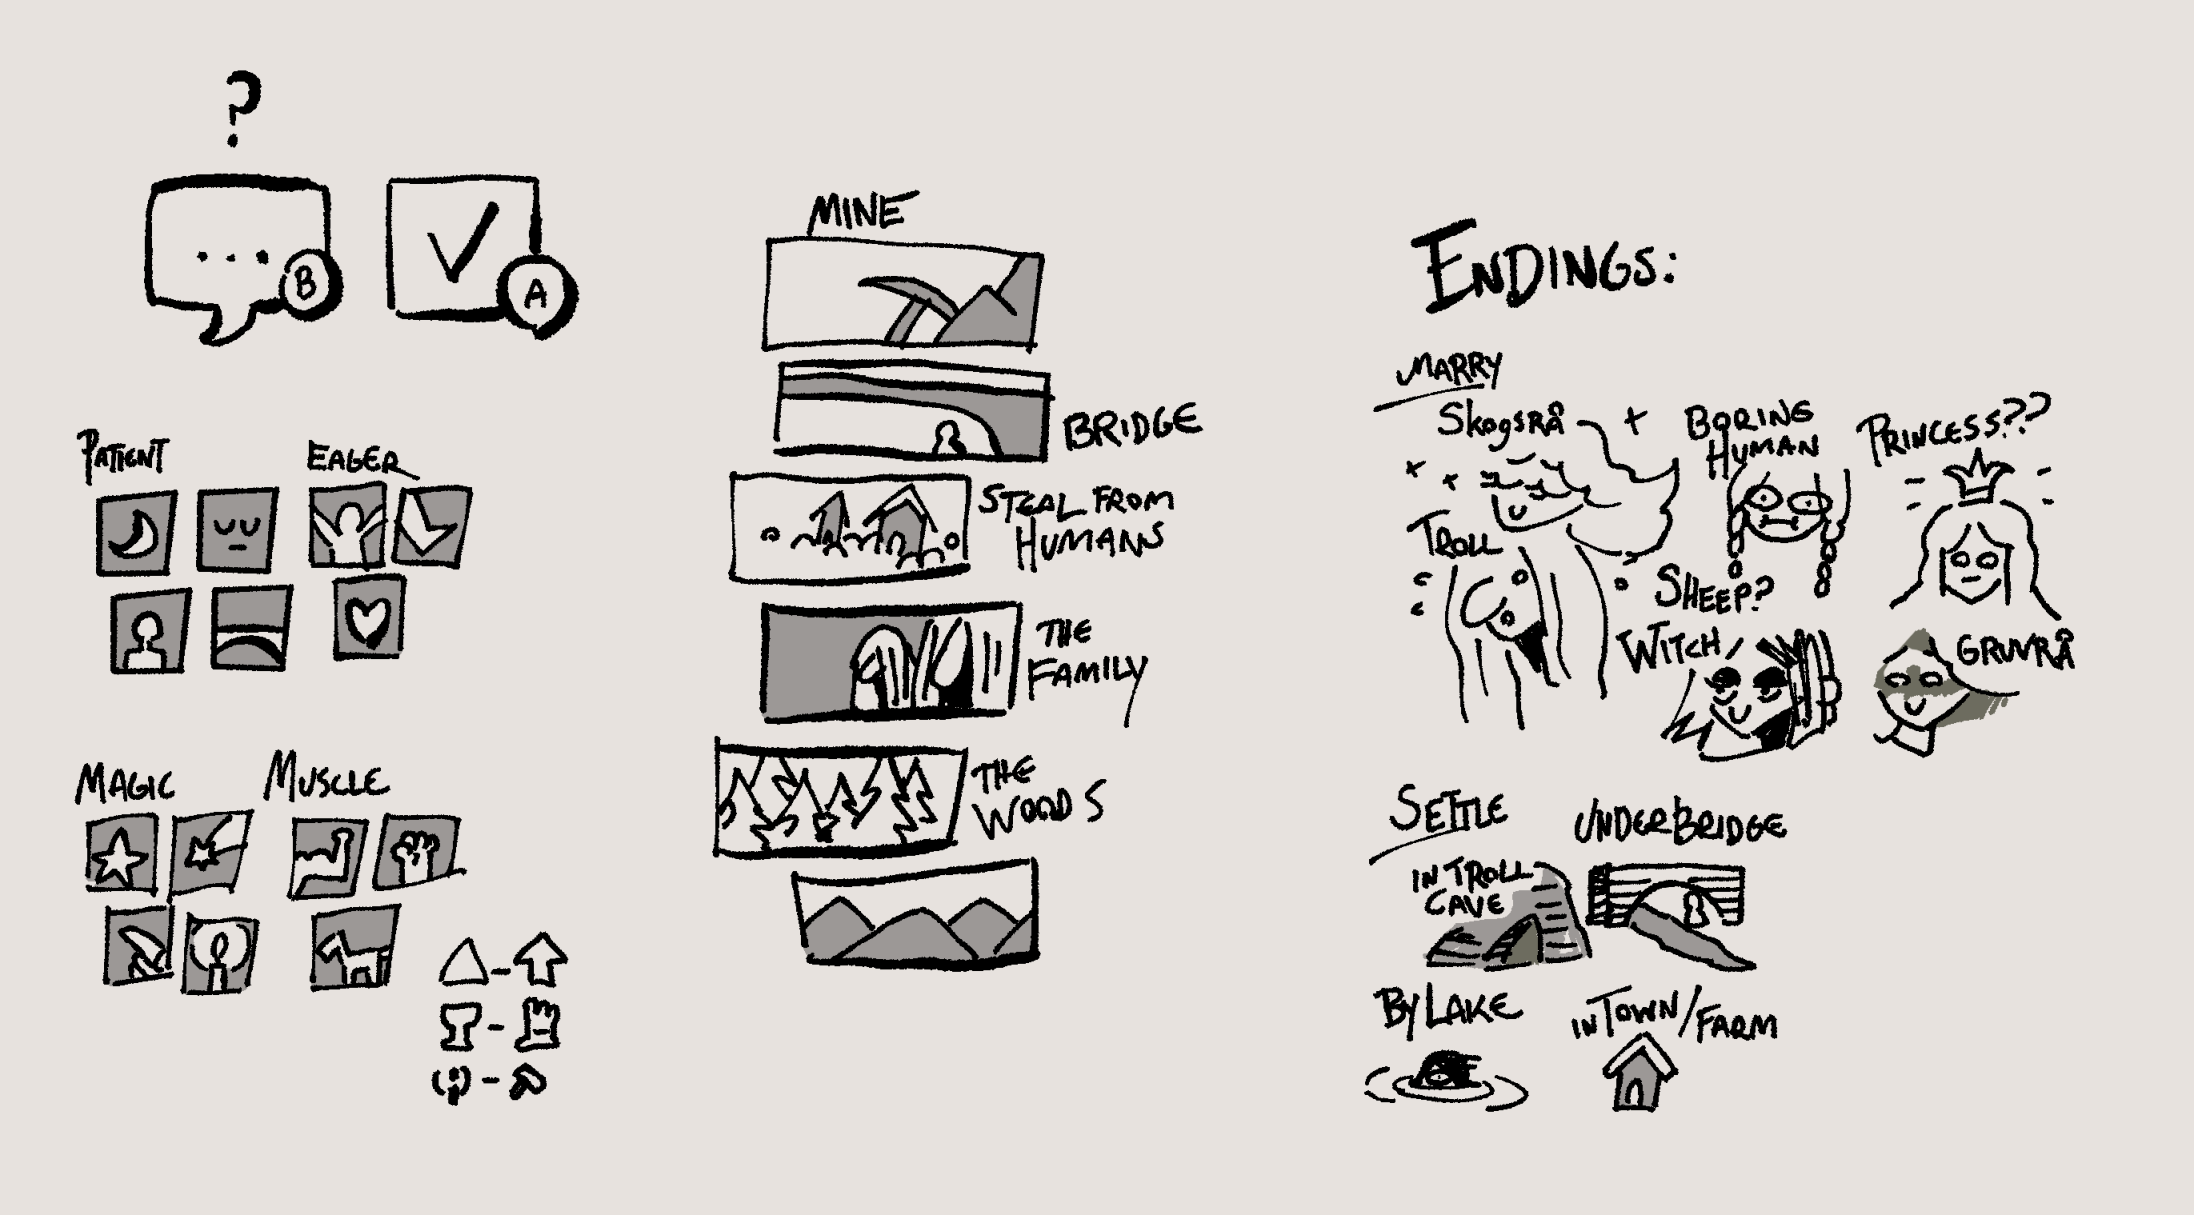 ?
...
B
A
PATIENT
EAGER
MAGIC
MUSCLE
MINE
BRIDGE
STEAL FROM
HUMANS
THE
FAMILY
THE
WOODS
ENDINGS:
MARRY
SKOGSRÅ
BORING
HUMAN
PRINCESS??
TROLL
SHEEP?
WITCH
GRUVRÅ
SETTLE
UNDER BRIDGE
IN TROLL
CAVE
BY LAKE
IN TOWN/FARM